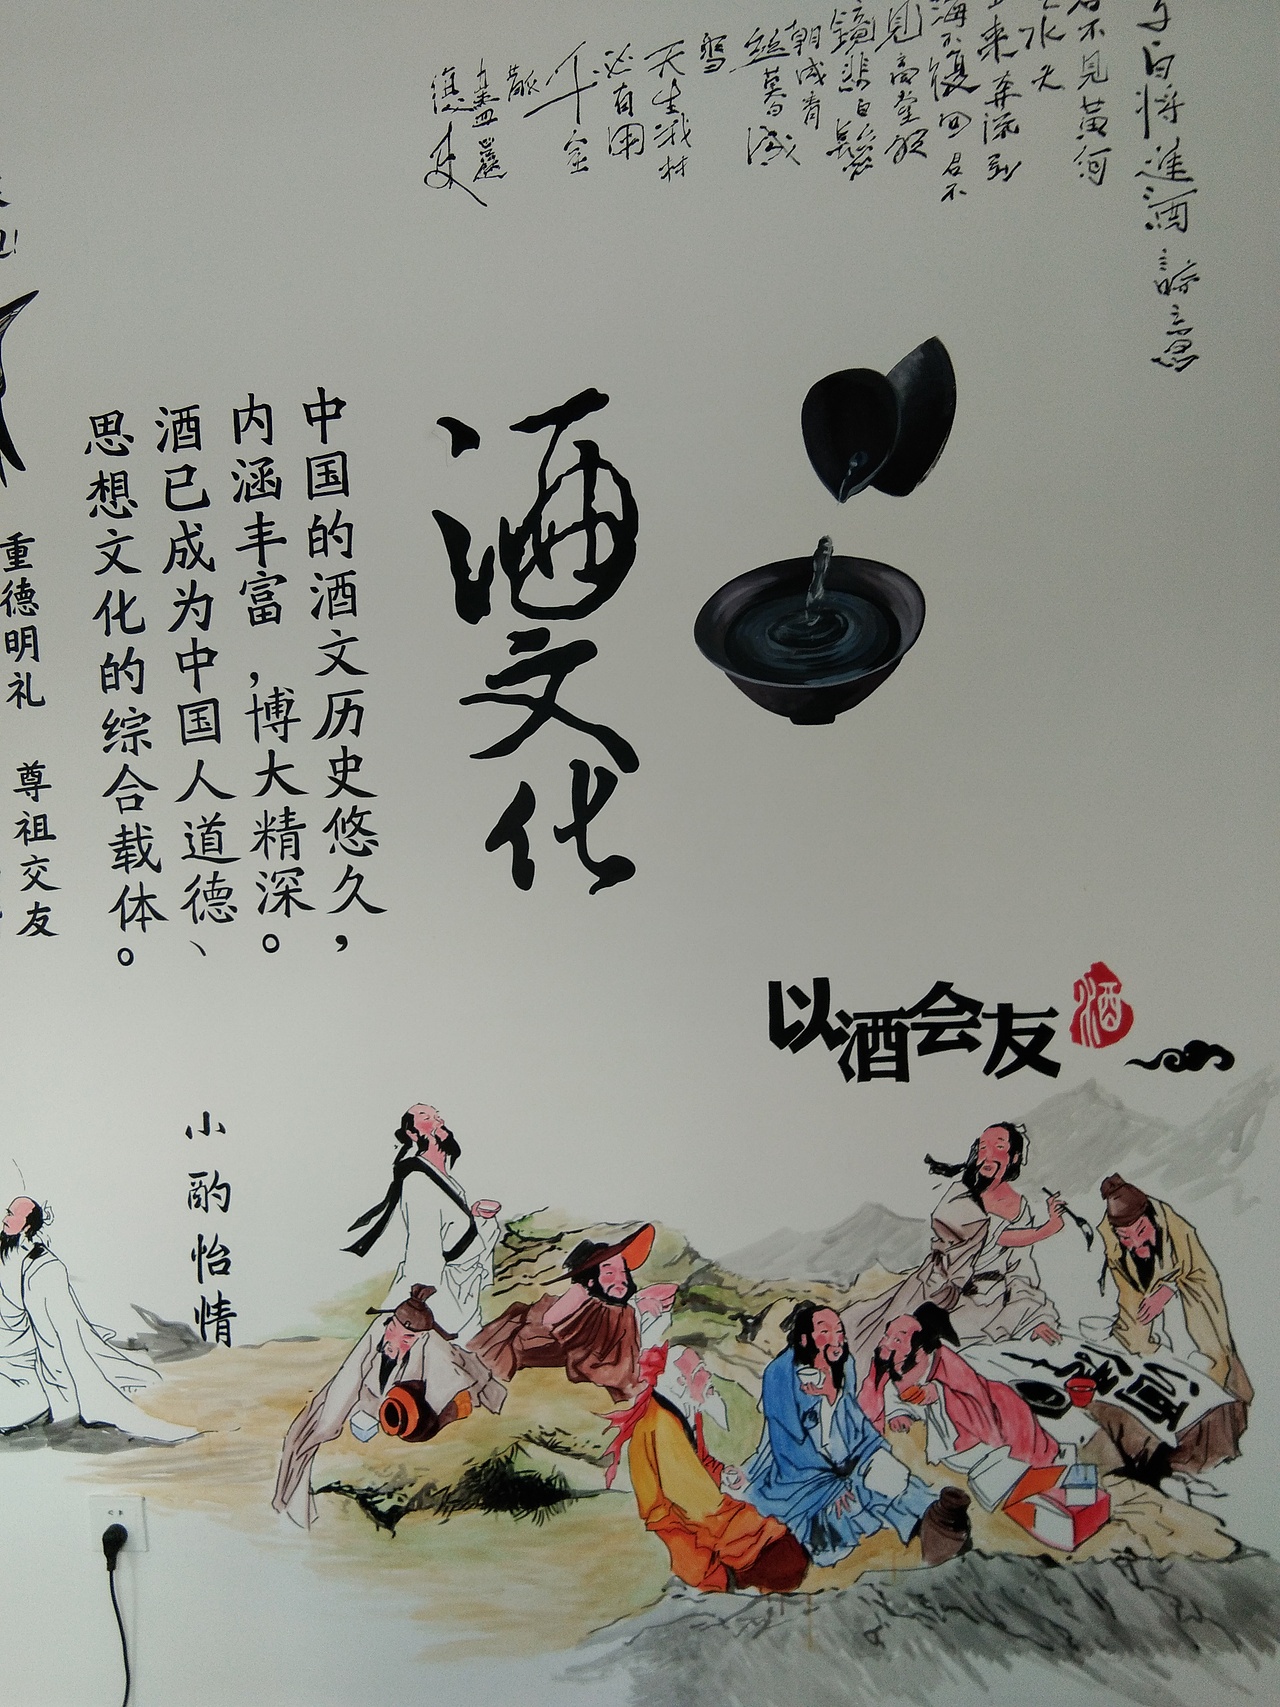 白將進酒詩意
君不見黃河
之水天
上来奔流到
海不復回君不
見高堂
鏡悲白髮
朝成青
絲暮成
雪
天生我材
必有用
千金
散
盡還
復来
酒文化
中国的酒文历史悠久，
内涵丰富，博大精深。
酒已成为中国人道德、
思想文化的综合载体。
重德明礼 尊祖交友
以酒会友
酒
小酌怡情
酒